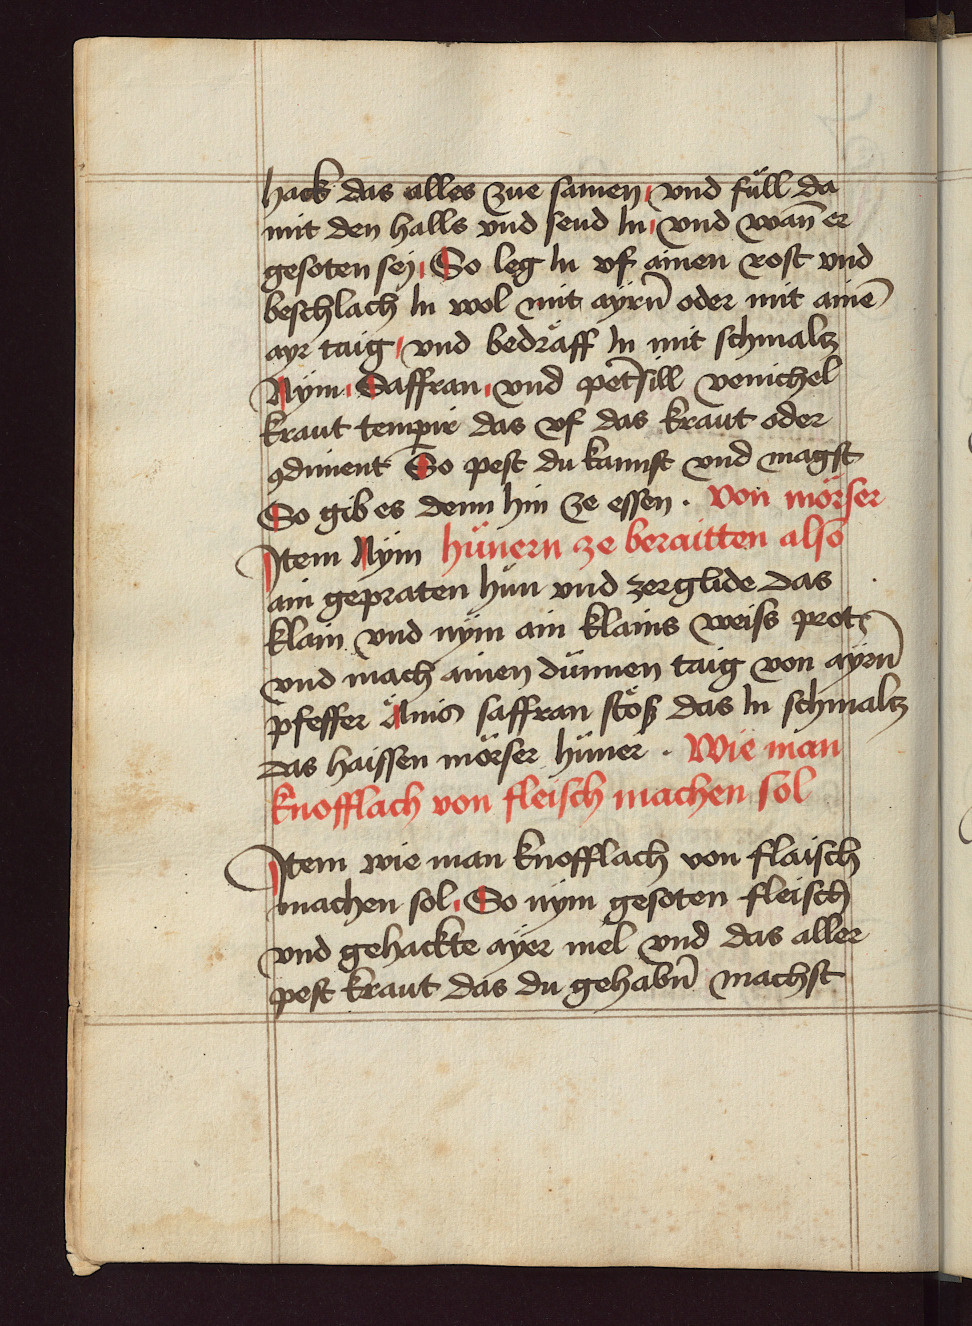 hack das alles zue samen vnd füll da
mit den halls vnd send In vnd wan̄ er
gesoten sej So leg In vf ainen rost vnd
beschlach In wol mit ayrn̄ oder mit ainē
ayr taig vnd bedräff In mit schmaltz
Nym Saffran vnd pet̄sill venichel
kraut tempir das vf das kraut oder
ꝯdiment So pest du kannst vnd magst
So gib es denn hin ze essen . von mörser
Item Nym hünern ze beraitten also
ain gepraten hün vnd zerglide das
klain vnd nym ain klains weiss prot
vnd mach ainen dünnen taig von ayrn̄
pfeffer Änis saffran stöß das In schmaltz
das haissen mörser hüner . Wie man
knofflach von fleisch machen sol
Item wie man knofflach von flaisch
machen sol So nym gesoten fleisch
vnd gehackte ayer mel vnd das aller
pest kraut das du gehabn̄ machst